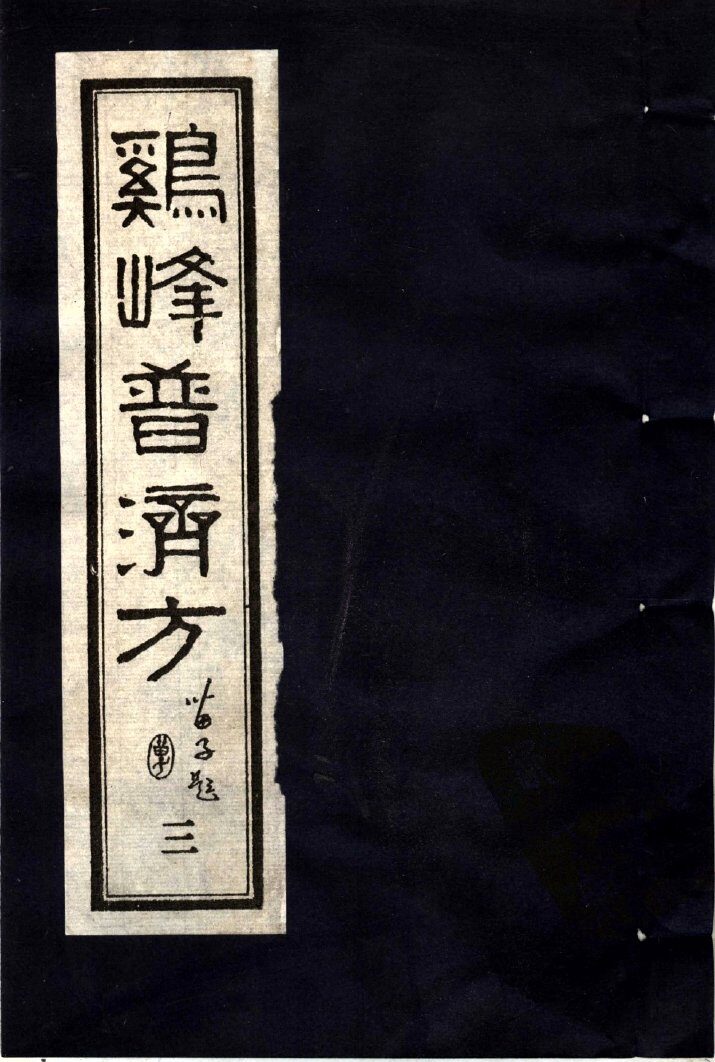 鷄峰普濟方
苗子題
三